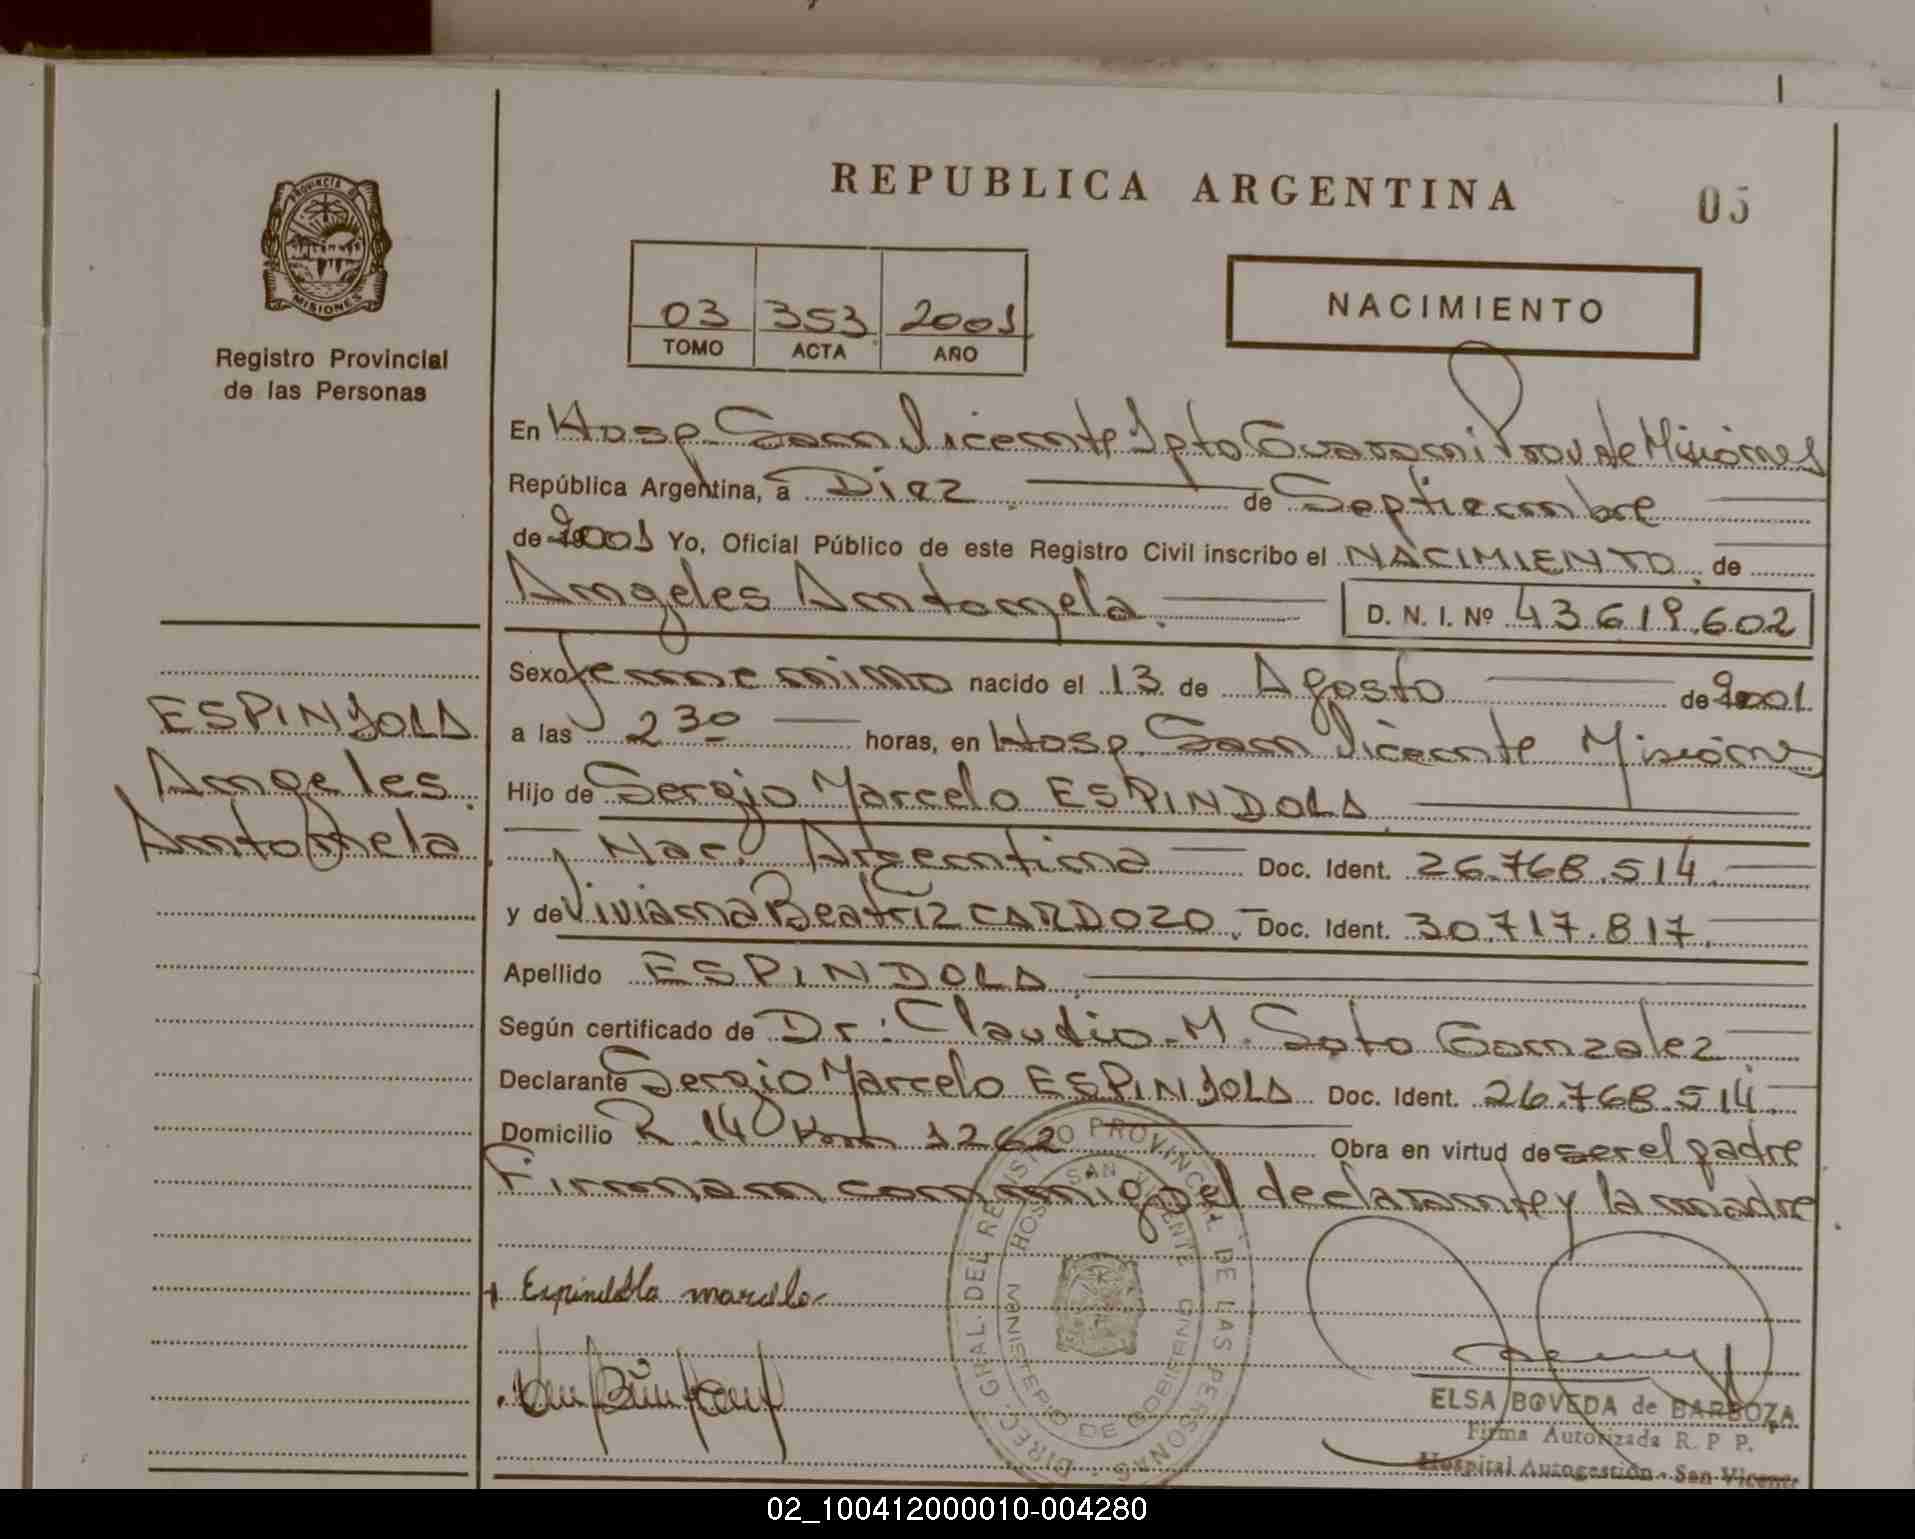 REPUBLICA ARGENTINA
05
PROVINCIA DE
MISIONES
Registro Provincial
de las Personas
03 353 2001
TOMO ACTA AÑO
NACIMIENTO
En Hosp. San Vicente Dpto Guarani Prov de Misiones
República Argentina, a Diez de Septiembre
de 2001 Yo, Oficial Público de este Registro Civil inscribo el NACIMIENTO de
Angeles Antonela D. N. I. Nº 43.619.602
Sexo femenino nacido el 13 de Agosto de 2001
a las 2 30 horas, en Hosp. San Vicente Misiones
Hijo de Sergio Marcelo ESPINDOLA
Nac. Argentina Doc. Ident. 26.768.514
y de Viviana Beatriz CARDOZO Doc. Ident. 30.717.817
Apellido ESPINDOLA
Según certificado de Dr: Claudio M. Soto Gonzalez
Declarante Sergio Marcelo ESPINDOLA Doc. Ident. 26.768.514
Domicilio R 14 Km 1262 Obra en virtud de ser el padre
Firman conmigo el declarante y la madre.
ESPINDOLA
Angeles
Antonela
Espindola marcelo
DIREC. GRAL. DEL REGISTRO PROVINCIAL DE LAS PERSONAS
HOSP. SAN VICENTE
MINISTERIO DE GOBIERNO
ELSA BOVEDA de BARBOZA
Firma Autorizada R. P. P.
Hospital Autogestión - San Vicente
02_100412000010-004280